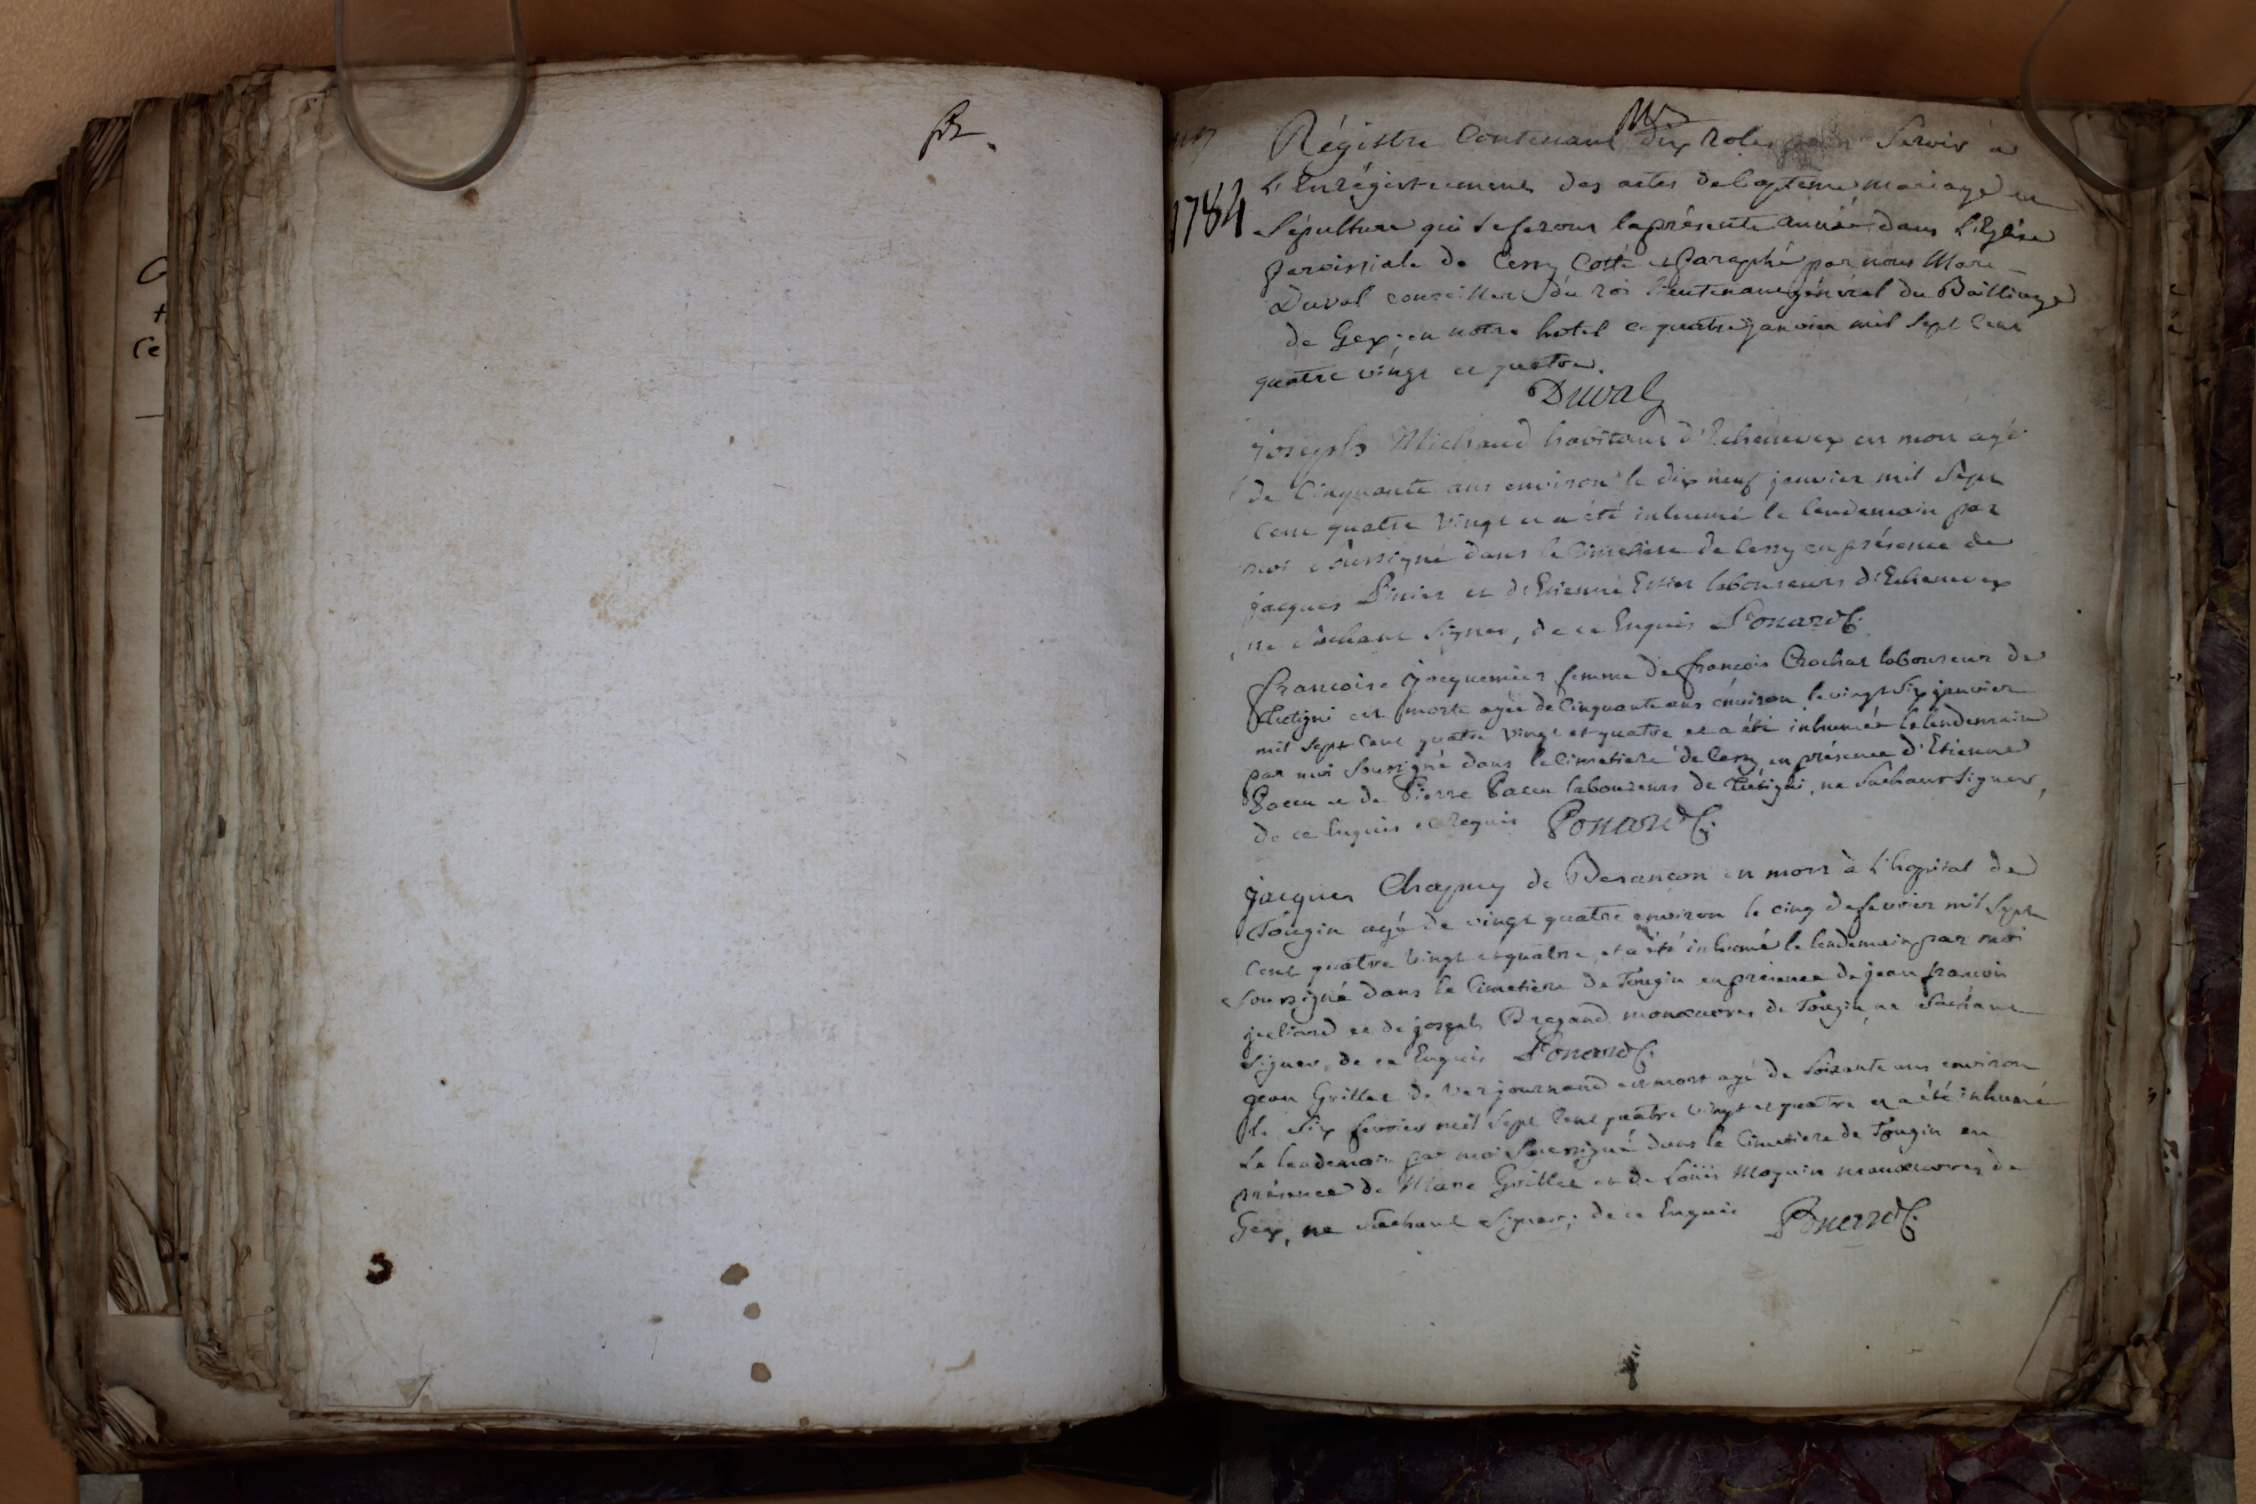 1784
Régistre Contenant dix roles pour Servir à
L'Enrégistrement des actes de baptême mariage et
Sépulture qui se feront la présente année dans L'Eglise
paroissiale de Cessy Cotté et Paraphé par nous Marc
Duval conseiller du roi lieutenant général du Bailliage
de Gex, en notre hotel ce quatre janvier mil Sept Cent
quatre vingt et quatre.
Duval
joseph Michaud habitant d'Echenevex est mort agé
de Cinquante ans environ le dix neuf janvier mil Sept
Cent quatre Vingt et a été inhumé le lendemain par
moi soussigné dans le Cimetiere de Cessy en présence de
jacques et d'Etienne laboureurs d'Echenevex
ne sachant signer, de ce Enquis Ponard C.
francoise jacquemier femme de françois Crochat laboureur de
est morte agée de Cinquante ans environ le vingt six janvier
mil Sept Cent quatre Vingt et quatre et a été inhumée le lendemain
par moi Soussigné dans le Cimetiere de Cessy en présence d'Etienne
et de Pierre laboureurs de, ne Sachant Signer,
de ce Enquis et Requis Ponard C.
jacques de Besancon est mort à L'hopital de
Tougin agé de vingt quatre environ le cinq de fevrier mil Sept
Cent quatre Vingt et quatre, et a été inhumé le lendemain par moi
Soussigné dans le Cimetiere de Tougin en présence de jean francois
et de joseph manœuvres de Tougin ne Sachant
Signer, de ce Enquis Ponard C.
jean Grillet de Verjournand est mort agé de Soixante ans environ
le Six fevrier mil Sept Cent quatre vingt et quatre et a été inhumé
Le lendemain par moi Soussigné dans le Cimetiere de Tougin en
présence de Marc Grillet et de Loüis Moquin manœuvres de
Gex, ne sachant Signer; de ce Enquis Ponard C.